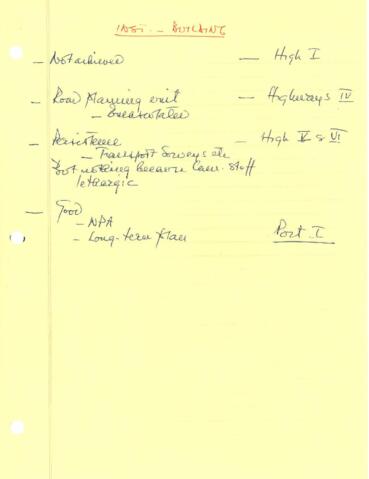 INST. - BUILDING
- Not achieved - High I
- Road Planning unit - Highways IV
- Persistence - High V & VI
- Transport Surveys etc
but nothing because Cam. staff
lethargic
- Good
- NPA
- Long-term Plan Port I